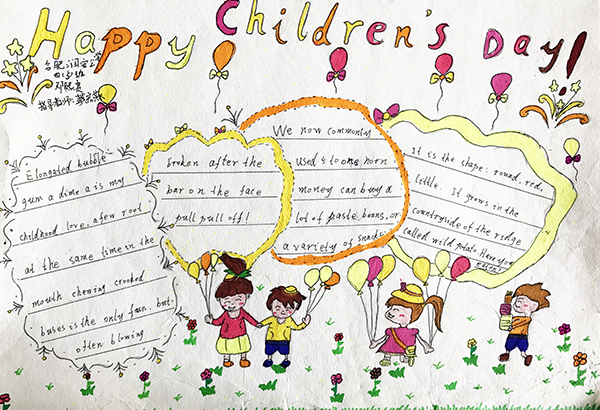 Happy Children's Day!
Elongated bubble
gum a dime a is my
childhood love, a few root
at the same time in the
mouth chewing crooked
buses is the only fun, but
often blowing
broken after the
bar on the face
pull pull off!
We now commonly
used to one horn
money can buy a
lot of paste beans, or
a variety of snacks.
It is the shape: round, red,
little. It grows in the
countryside of the ridge
called wild potato. Have you
eaten?